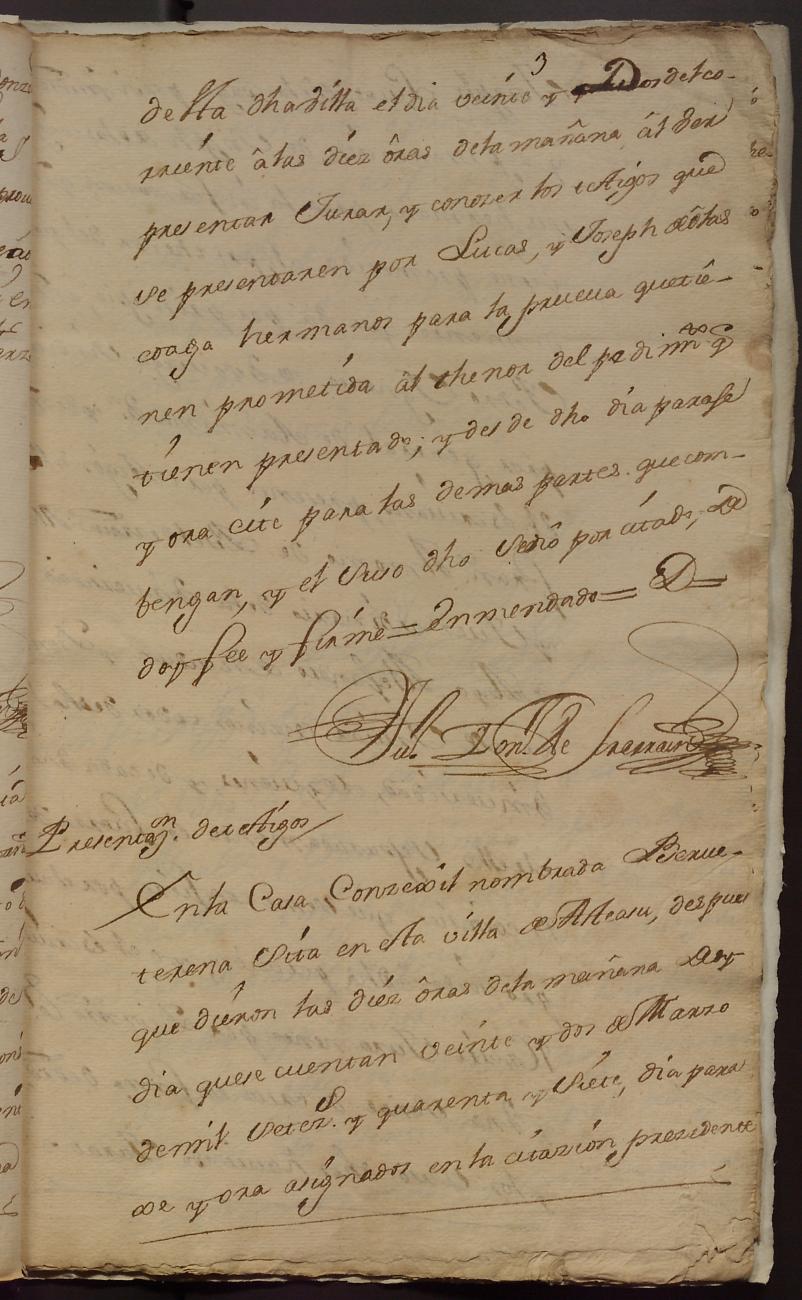 3
desta dha villa el dia veinte y Dos del co-
rriente â las diez ôras de la mañana âl ver
presentar Jurar, y conozer los testigos que
se presentaren por Lucas, y Joseph de
coaga hermanos para la prueva que tie-
nen prometida âl thenor del pedimto q
tienen presentado; y desde dho dia parase
y ora cite para las demas partes que com-
bengan, y el suso dho sediô por citado, de
doy fee y firmé = Enmendado = D =
de
Presentazn. de testigos
En la Casa Conzexil nombrada Berue-
terena sita en esta villa de Asteasu, despues
que dieron las diez ôras de la mañana de oy
dia que se cuentan veinte y dos de Marzo
de mil setezs. y quarenta y siete, dia para
se y ora asignados en la citazion prezedente